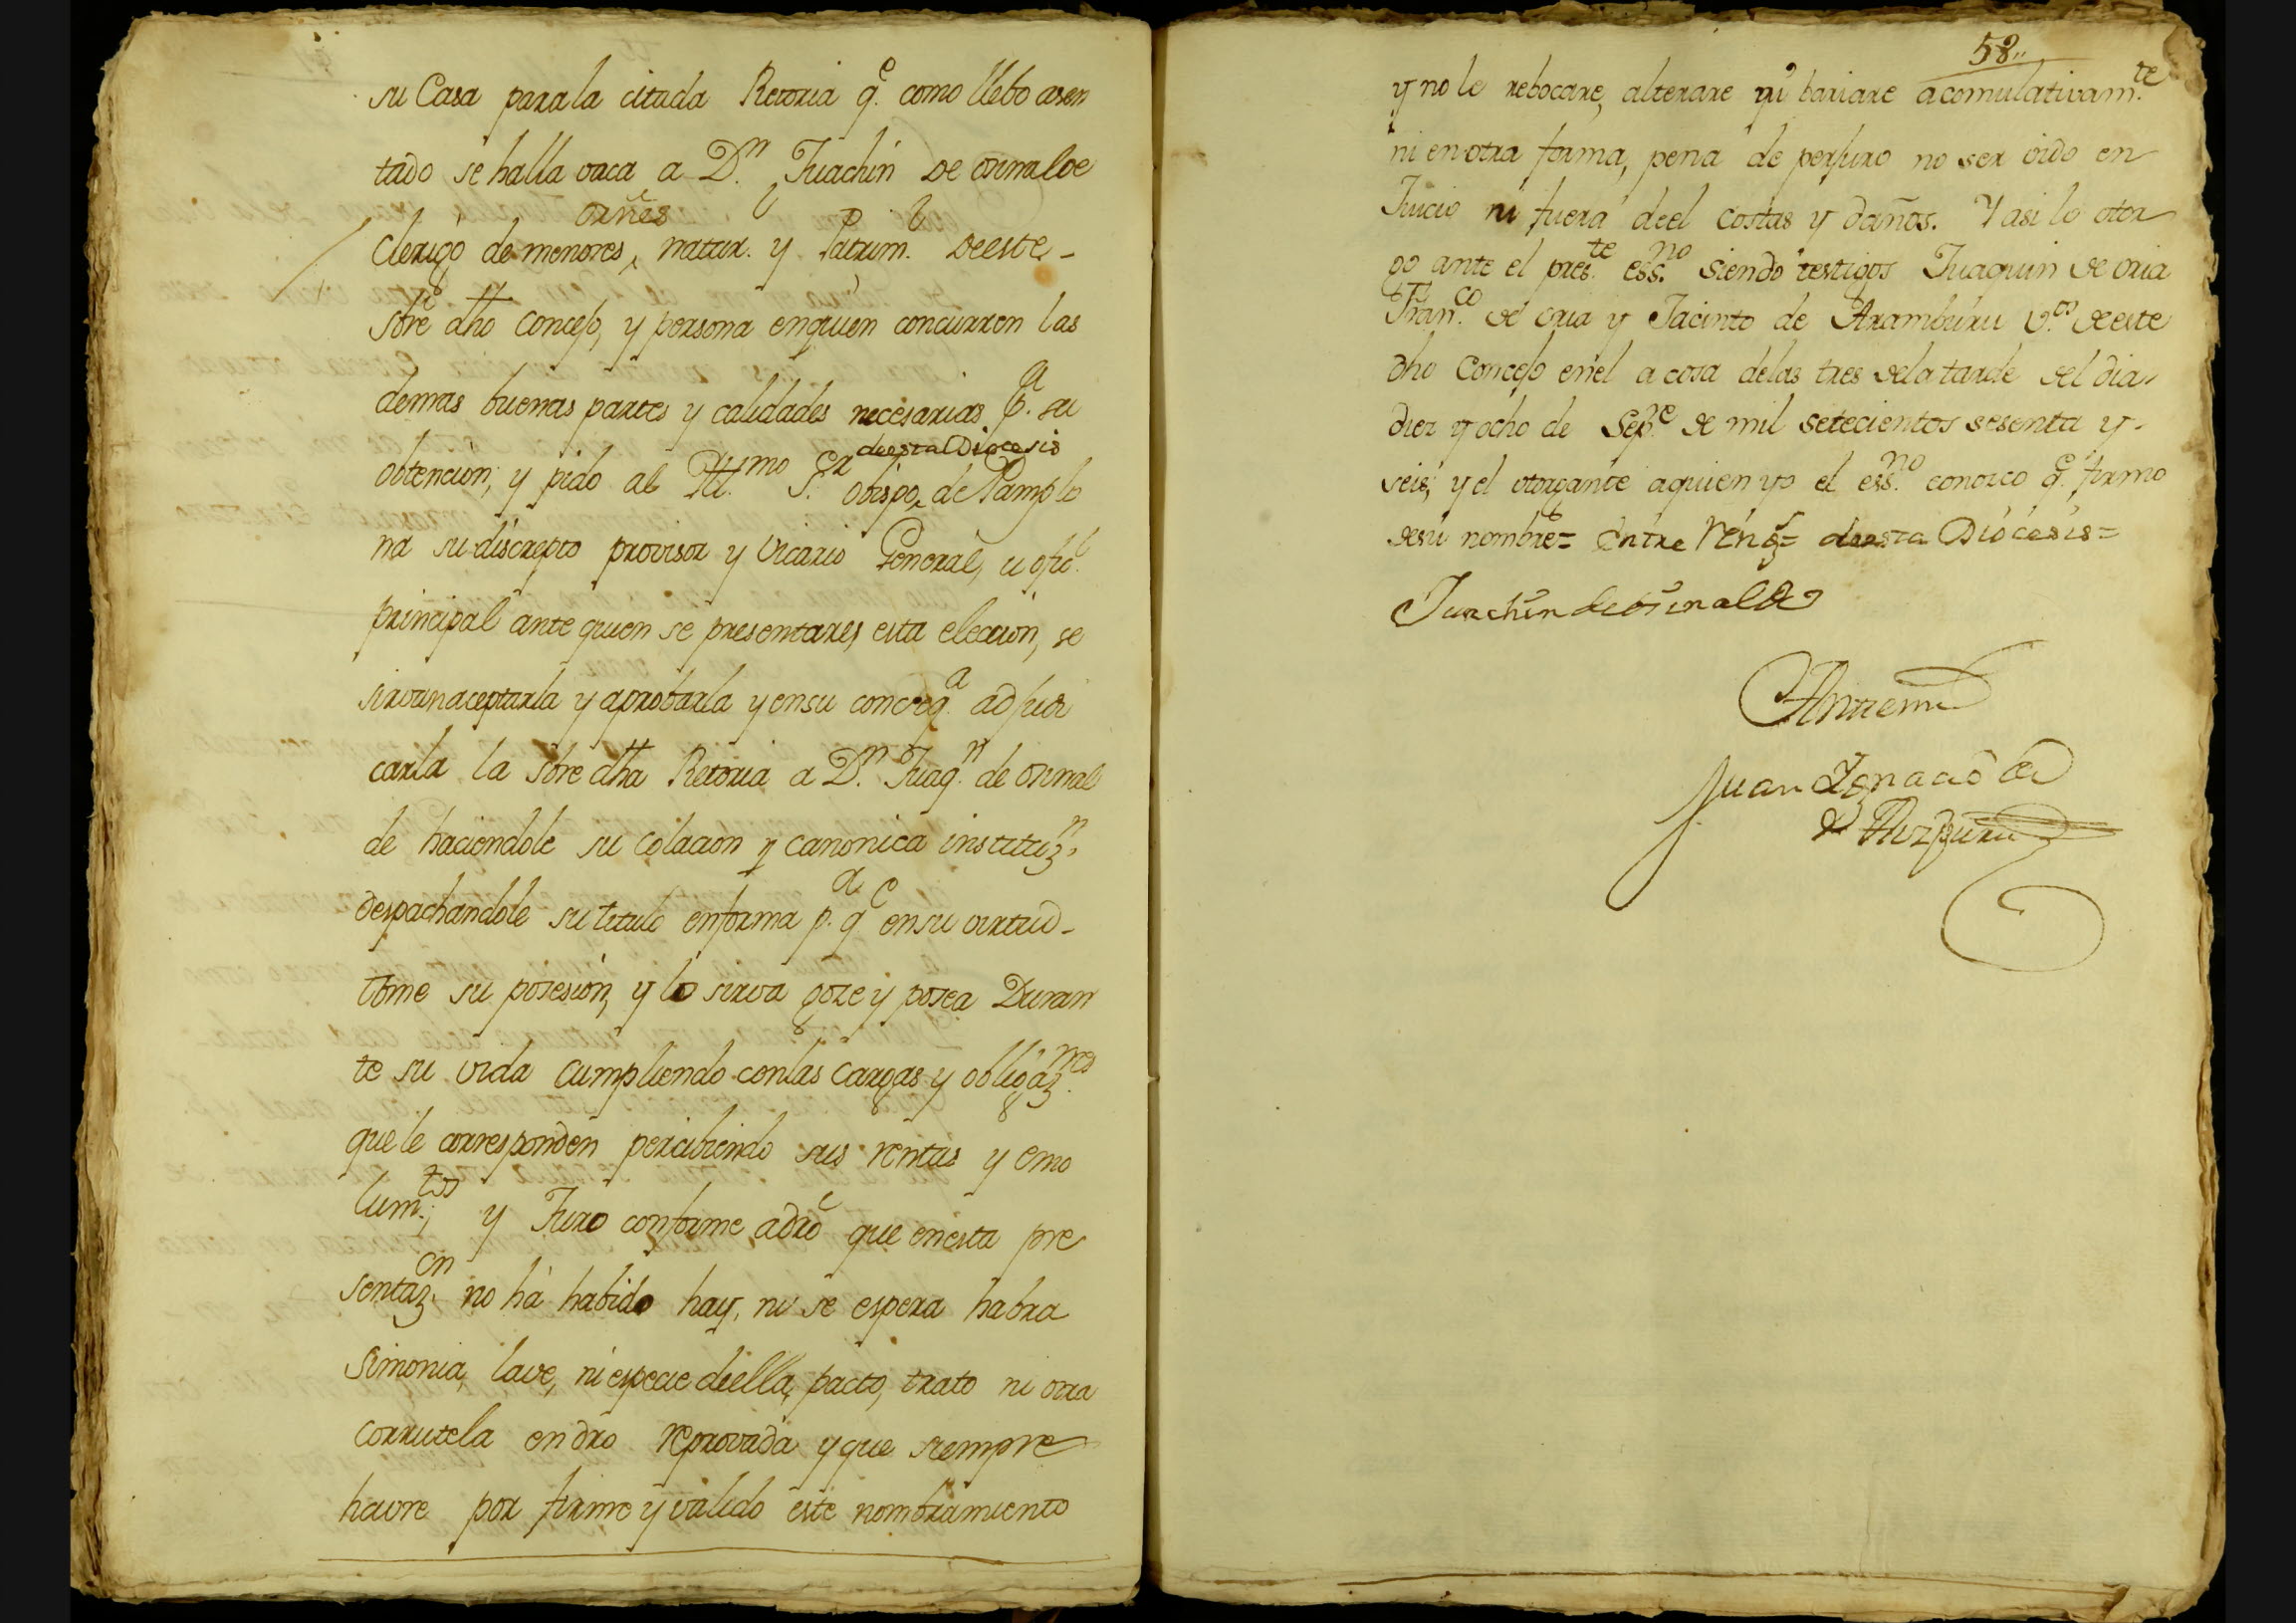 su Casa para la citada Retoria q.e como llebo asen
tado se halla vaca a D.n Juachin de osinalde
orñes
Clerigo de menores, natur.l y Patrim.l de este -
sõre dho Concejo, y persona enquien concurren las
demas buenas partes y calidades necesarias p.a su
de esta Diocesis
obtencion; y pido al Ill.mo S.or obispo de Pamplo
na su discrepto provisor y Vicario General, u ofiz.l
principal ante quien se presentare esta eleccion, se
sirvan aceptarla y aprobarla y ensu conseq.a adjudi
carla la sõre dha Retoria a D.n Juaq.n de osinal
de haciendole su colacion y canonica instituz.n
despachandole su titulo enforma p.a q.e ensu virtud -
tome su posesion, y lo sirva goze y posea Duran
te su vida Cumpliendo conlas Cargas y obligaz.nes
que le corresponden percibiendo sus rentas y emo
lum.tos; y Juro conforme adrõ que enesta pre
sentaz.on no hà habido hay, ni se espera habra
Simonia, lave, ni especie de ella, pacto, trato ni otra
corrutela endro reprovada y que siempre
havre por firme y valido este nombramiento
58..
y no le rebocare, alterare ni bariare acomulativam.te
ni en otra forma, pena de perjuro no ser oido en
Juicio ni fuera deel costas y daños. Y asi lo otor
go ante el pres.te ess.no siendo testigos Juaquin de oria
Fran.co de oria y Jacinto de Aramburu v.os de este
dho Concejo enel a cosa delas tres dela tarde del dia
diez y ocho de Sep.re de mil setecientos sesenta y -
seis; y el otorgante aquien yo el ess.no conozco q.e firmo
desu nombre= Entre reng.s= de esta Diocesis=
Juachin de osinalde
Antemi
Juan Ygnacio de
Aizpuru